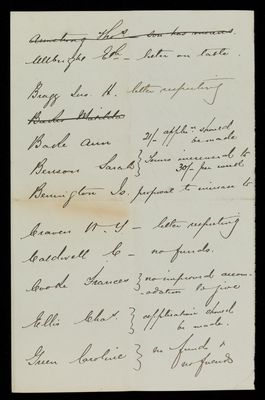 Armstrong Thos - son has means.
Allbright Edh - letter on table.
Bragg Jno. H. letter respecting
Bache Ann
21/- applic.n should be made
Benson Sarah } Terms increased to 30/- per week
Bennington Is. proposal to increase to
Craven W. Y - letter respecting
Caldwell C - no funds.
Coode Frances } no improved accom-
odation to give
Ellis Chas. } application should
be made.
Green Caroline } no funds "
no friends